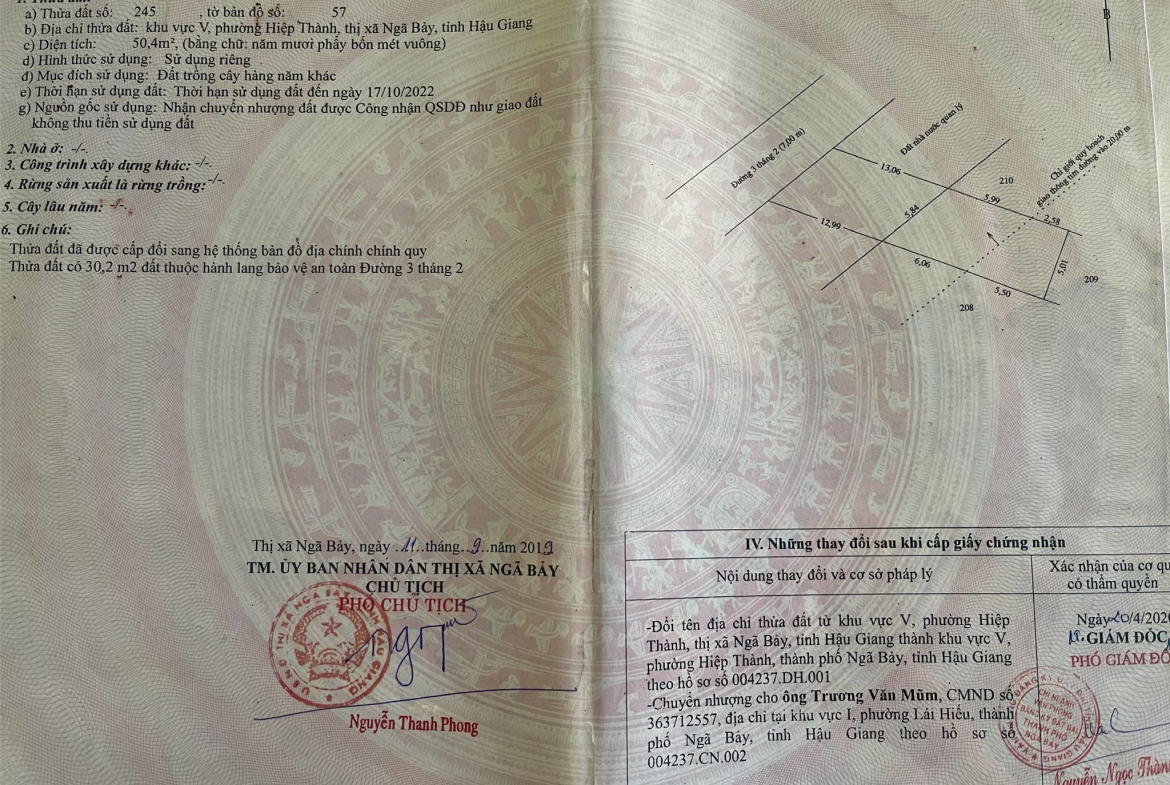 a) Thửa đất số: 245 , tờ bản đồ số: 57
b) Địa chỉ thửa đất: khu vực V, phường Hiệp Thành, thị xã Ngã Bảy, tỉnh Hậu Giang
c) Diện tích: 50,4m², (bằng chữ: năm mươi phẩy bốn mét vuông)
d) Hình thức sử dụng: Sử dụng riêng
đ) Mục đích sử dụng: Đất trồng cây hàng năm khác
e) Thời hạn sử dụng đất: Thời hạn sử dụng đất đến ngày 17/10/2022
g) Nguồn gốc sử dụng: Nhận chuyển nhượng đất được Công nhận QSDĐ như giao đất
không thu tiền sử dụng đất
2. Nhà ở: -/-.
3. Công trình xây dựng khác: -/-.
4. Rừng sản xuất là rừng trồng: -/-.
5. Cây lâu năm: -/-.
6. Ghi chú:
Thửa đất đã được cấp đổi sang hệ thống bản đồ địa chính chính quy
Thửa đất có 30,2 m2 đất thuộc hành lang bảo vệ an toàn Đường 3 tháng 2
Thị xã Ngã Bảy, ngày 11 tháng 9 năm 2019
TM. ỦY BAN NHÂN DÂN THỊ XÃ NGÃ BẢY
CHỦ TỊCH
PHÓ CHỦ TỊCH
Nguyễn Thanh Phong
B
Đường 3 tháng 2 (7,00 m)
Đất nhà nước quản lý
Chỉ giới quy hoạch
giao thông tim đường vào 20,00 m
13,06
210
5,99
2,58
5,84
12,99
6,06
5,01
5,50
209
208
IV. Những thay đổi sau khi cấp giấy chứng nhận
Nội dung thay đổi và cơ sở pháp lý
Xác nhận của cơ qu
có thẩm quyền
-Đổi tên địa chỉ thửa đất từ khu vực V, phường Hiệp
Thành, thị xã Ngã Bảy, tỉnh Hậu Giang thành khu vực V,
phường Hiệp Thành, thành phố Ngã Bảy, tỉnh Hậu Giang
theo hồ sơ số 004237.DH.001
-Chuyển nhượng cho ông Trương Văn Mũm, CMND số
363712557, địa chỉ tại khu vực I, phường Lái Hiếu, thành
phố Ngã Bảy, tỉnh Hậu Giang theo hồ sơ số
004237.CN.002
Ngày 20/4/202
GIÁM ĐỐC
PHÓ GIÁM ĐỐ
CHI NHÁNH
VĂN PHÒNG
ĐĂNG KÝ ĐẤT ĐAI
THÀNH PHỐ
NGÃ BẢY
Nguyễn Ngọc Thàn